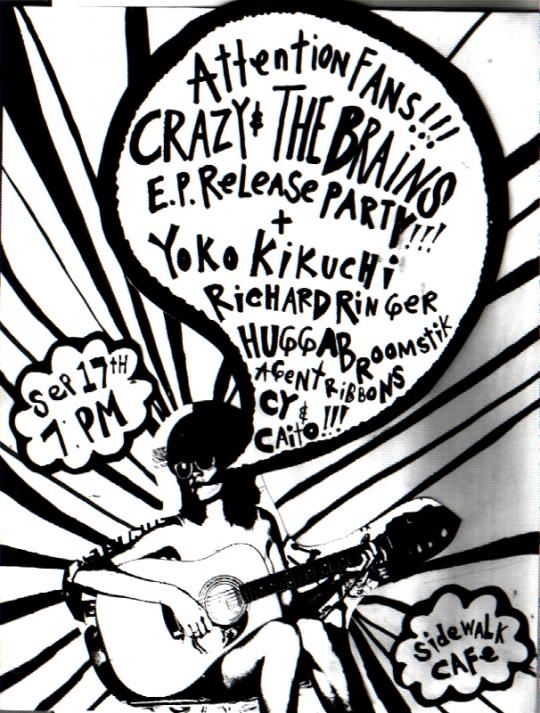 AttentionFANS!!!
CRAZY & THE BRAiNS
E.P. ReLeAse PARTY!!!
+
YoKo KiKuCHi
RicHARD RiNGeR
HUGGABROOMSTiK
AGENT RiBBONS
CY &
CAiTO!!!
Sep 17TH
7: PM
SideWALK
CAFe